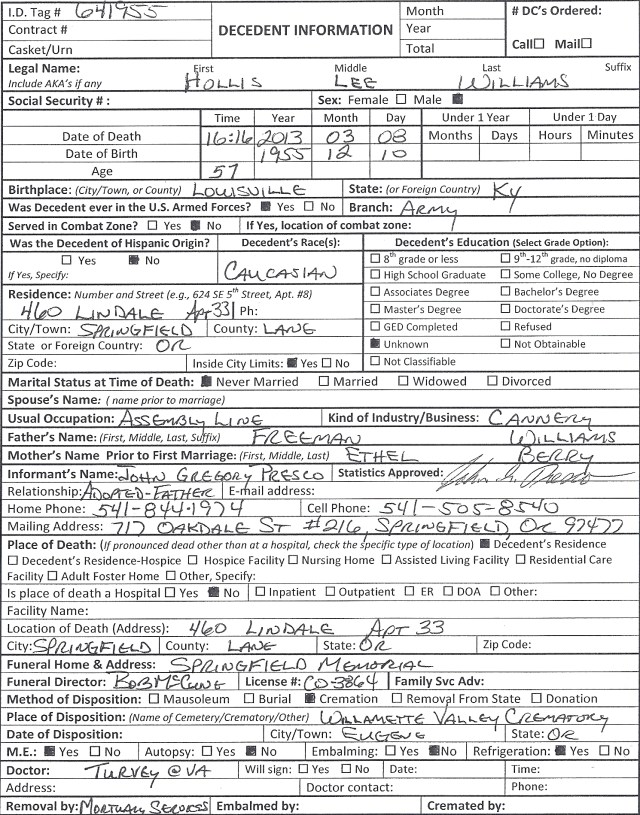 I.D. Tag # 641955 DECEDENT INFORMATION Month # DC's Ordered:
Contract # Year
Casket/Urn Total Call☐ Mail☐
Legal Name: First Middle Last Suffix
Include AKA's if any HOLLIS LEE WILLIAMS
Social Security # : Sex: Female ☐ Male ■
Time Year Month Day Under 1 Year Under 1 Day
Date of Death 16:16 2013 03 08 Months Days Hours Minutes
Date of Birth 1955 12 10
Age 57
Birthplace: (City/Town, or County) LOUISVILLE State: (or Foreign Country) KY
Was Decedent ever in the U.S. Armed Forces? ■ Yes ☐ No Branch: ARMY
Served in Combat Zone? ☐ Yes ■ No If Yes, location of combat zone:
Was the Decedent of Hispanic Origin? Decedent's Race(s): Decedent's Education (Select Grade Option):
☐ Yes ■ No CAUCASIAN ☐ 8th grade or less ☐ 9th-12th grade, no diploma
If Yes, Specify: ☐ High School Graduate ☐ Some College, No Degree
Residence: Number and Street (e.g., 624 SE 5th Street, Apt. #8) ☐ Associates Degree ☐ Bachelor's Degree
460 LINDALE APT 33 Ph: ☐ Master's Degree ☐ Doctorate's Degree
City/Town: SPRINGFIELD County: LANE ☐ GED Completed ☐ Refused
State or Foreign Country: OR ■ Unknown ☐ Not Obtainable
Zip Code: Inside City Limits: ■ Yes ☐ No ☐ Not Classifiable
Marital Status at Time of Death: ■ Never Married ☐ Married ☐ Widowed ☐ Divorced
Spouse's Name: ( name prior to marriage)
Usual Occupation: ASSEMBLY LINE Kind of Industry/Business: CANNERY
Father's Name: (First, Middle, Last, Suffix) FREEMAN WILLIAMS
Mother's Name Prior to First Marriage: (First, Middle, Last) ETHEL BERRY
Informant's Name: JOHN GREGORY PRESCO Statistics Approved: John G. Presco
Relationship: ADOPTED-FATHER E-mail address:
Home Phone: 541-844-1974 Cell Phone: 541-505-8540
Mailing Address: 717 OAKDALE ST #216, SPRINGFIELD, OR 97477
Place of Death: (If pronounced dead other than at a hospital, check the specific type of location) ■ Decedent's Residence
☐ Decedent's Residence-Hospice ☐ Hospice Facility ☐ Nursing Home ☐ Assisted Living Facility ☐ Residential Care
Facility ☐ Adult Foster Home ☐ Other, Specify:
Is place of death a Hospital ☐ Yes ■ No ☐ Inpatient ☐ Outpatient ☐ ER ☐ DOA ☐ Other:
Facility Name:
Location of Death (Address): 460 LINDALE APT 33
City: SPRINGFIELD County: LANE State: OR Zip Code:
Funeral Home & Address: SPRINGFIELD MEMORIAL
Funeral Director: BOB McCLUNE License #: CO-3864 Family Svc Adv:
Method of Disposition: ☐ Mausoleum ☐ Burial ■ Cremation ☐ Removal From State ☐ Donation
Place of Disposition: (Name of Cemetery/Crematory/Other) WILLAMETTE VALLEY CREMATORY
Date of Disposition: City/Town: EUGENE State: OR
M.E.: ■ Yes ☐ No Autopsy: ☐ Yes ■ No Embalming: ☐ Yes ■ No Refrigeration: ■ Yes ☐ No
Doctor: TURVEY @ VA Will sign: ☐ Yes ☐ No Date: Time:
Address: Doctor contact: Phone:
Removal by: MORTUARY SERVICES Embalmed by: Cremated by: